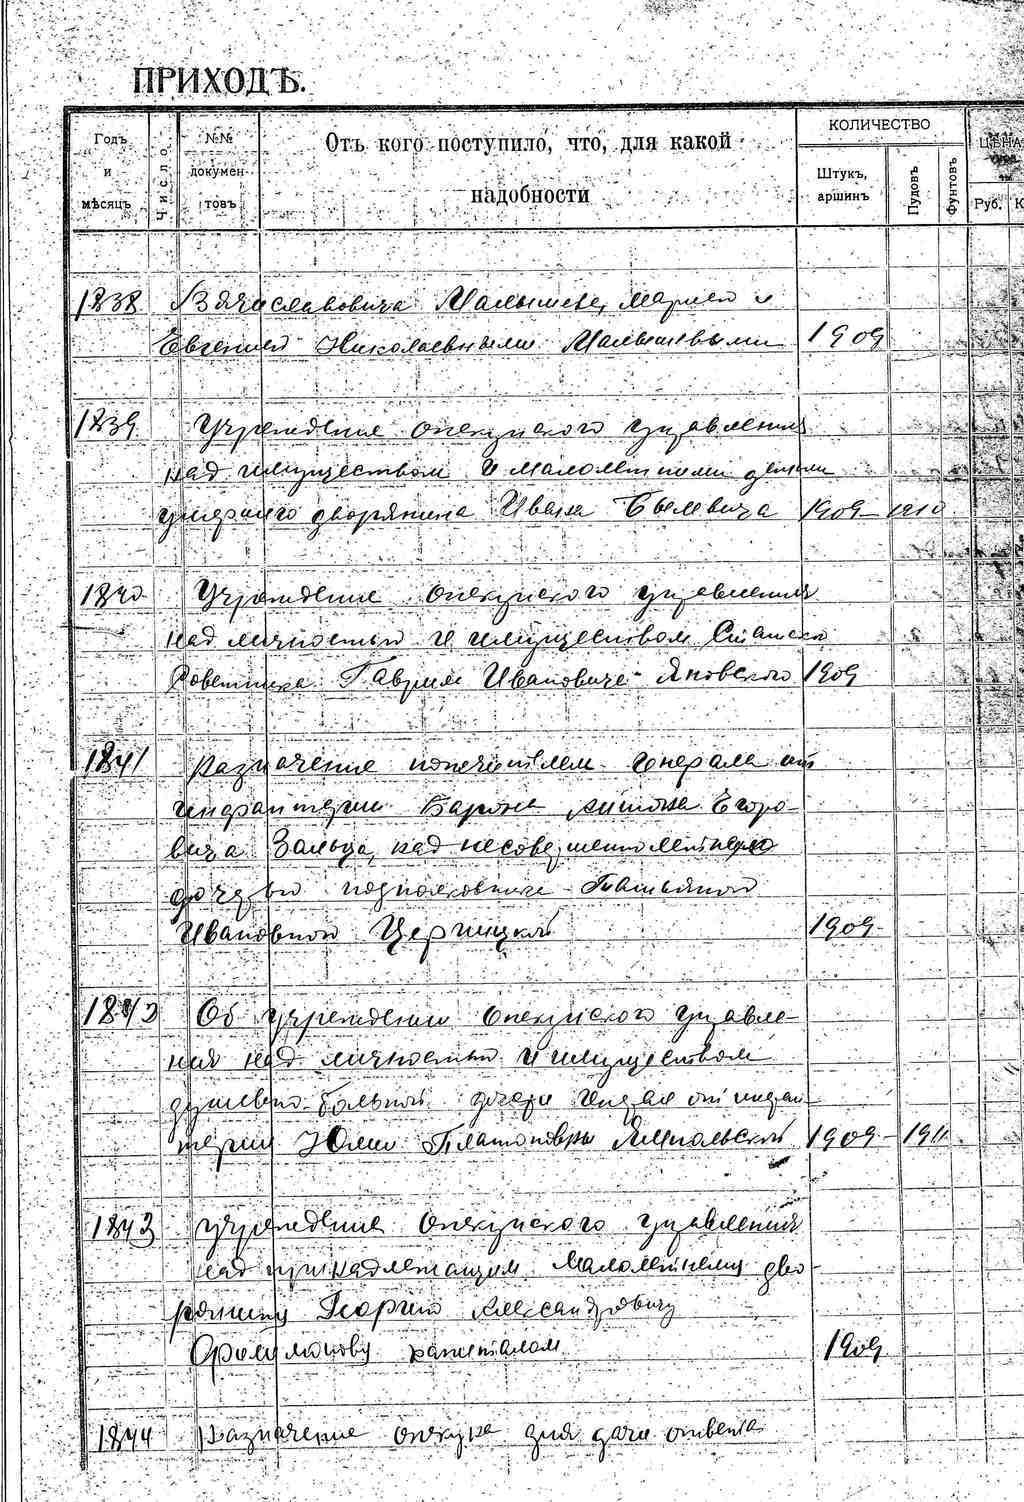 ПРИХОДЪ.
Годъ и мѣсяцъ
Число
№№ докумен- товъ
Отъ кого поступило, что, для какой
надобности
КОЛИЧЕСТВО
Штукъ, аршинъ
Пудовъ
Фунтовъ
ЦѢНА
Руб. К
1838 Вячеславовича Малышева, Марией и
Евгенией Николаевными Малышевыми 1909
1839 Учреждение опекунского управления
над имуществом и малолетними детьми
умершего дворянина Ивана 1909-1910
1840 Учреждение опекунского управления
над личностью и имуществом Статск
Советника Гавриила Ивановича Яновского 1909
1841 Назначение попечителем Генерала от
инфантерии Барона Антона Егоро-
вича Зальца, над несовершеннолетнею
дочерью подполковника Татьяной
Ивановной 1909
1842 Об учреждении Опекунского управле-
ния над личностью и имуществом
душевно-больной дочери Генерал от инфан-
терии Юлии Платоновны Ямпольской 1909-1911
1843 Учреждение Опекунского управления
над принадлежащим малолетнему дво-
рянину Георгию Александровичу
Филимонову капиталом 1909
1844 Назначение опекуна для дачи ответа